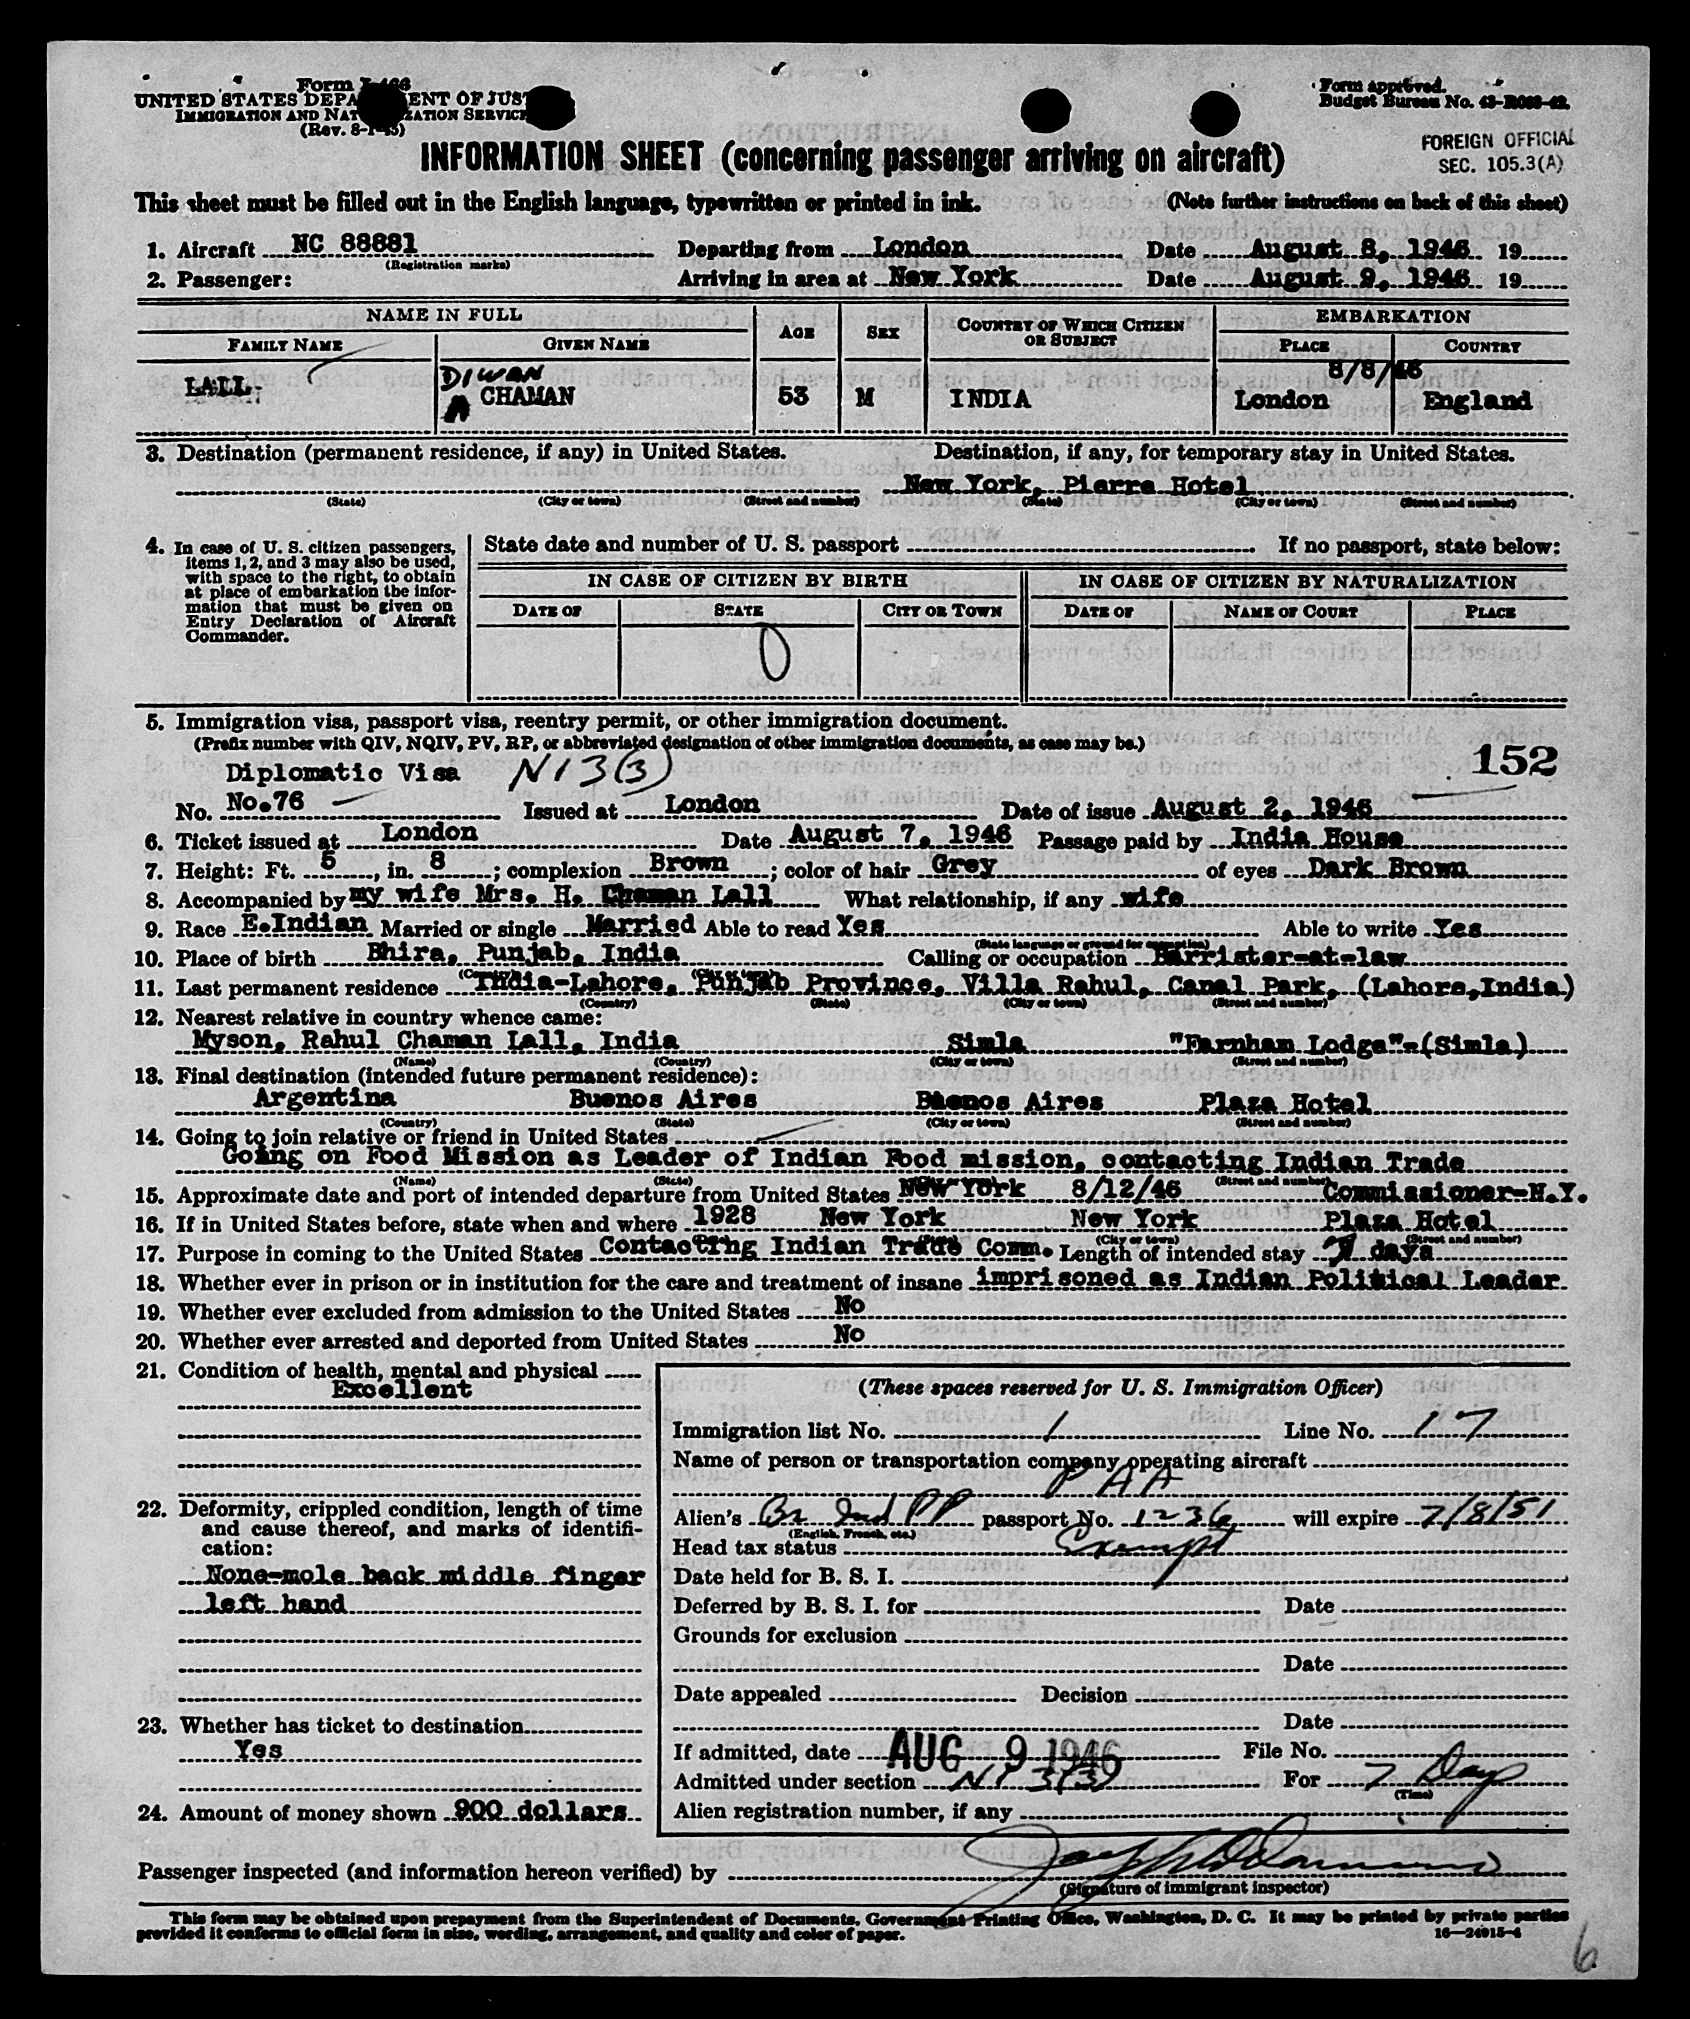 Form I-466
UNITED STATES DEPARTMENT OF JUSTICE
IMMIGRATION AND NATURALIZATION SERVICE
(Rev. 8-1-45)
Form approved.
Budget Bureau No. 43-R083-42.
FOREIGN OFFICIAL
SEC. 105.3(A)
INFORMATION SHEET (concerning passenger arriving on aircraft)
This sheet must be filled out in the English language, typewritten or printed in ink. (Note further instructions on back of this sheet)
1. Aircraft NC 88881 Departing from London Date August 8, 1946 19
(Registration marks)
2. Passenger: Arriving in area at New York Date August 9, 1946 19
NAME IN FULL AGE SEX COUNTRY OF WHICH CITIZEN OR SUBJECT EMBARKATION
FAMILY NAME GIVEN NAME PLACE COUNTRY
8/8/46
DIWAN
LALL CHAMAN 53 M INDIA London England
3. Destination (permanent residence, if any) in United States. Destination, if any, for temporary stay in United States.
New York, Pierre Hotel
(State) (City or town) (Street and number) (State) (City or town) (Street and number)
4. In case of U. S. citizen passengers, items 1, 2, and 3 may also be used, with space to the right, to obtain at place of embarkation the information that must be given on Entry Declaration of Aircraft Commander.
State date and number of U. S. passport If no passport, state below:
IN CASE OF CITIZEN BY BIRTH IN CASE OF CITIZEN BY NATURALIZATION
DATE OF STATE CITY OR TOWN DATE OF NAME OF COURT PLACE
0
5. Immigration visa, passport visa, reentry permit, or other immigration document.
(Prefix number with QIV, NQIV, PV, RP, or abbreviated designation of other immigration documents, as case may be.)
152
Diplomatic Visa N13(3)
No. No.76 Issued at London Date of issue August 2, 1946
6. Ticket issued at London Date August 7, 1946 Passage paid by India House
7. Height: Ft. 5, in. 8; complexion Brown; color of hair Grey of eyes Dark Brown
8. Accompanied by my wife Mrs. H. Chaman Lall What relationship, if any wife
9. Race E.Indian Married or single Married Able to read Yes Able to write Yes
(State language or ground for exemption)
10. Place of birth Bhira, Punjab, India Calling or occupation Barrister-at-law
(Country) (City or town)
11. Last permanent residence India-Lahore, Punjab Province, Villa Rahul, Canal Park, (Lahore,India)
(Country) (State) (City or town) (Street and number)
12. Nearest relative in country whence came:
Myson, Rahul Chaman Lall, India Simla "Farnham Lodge"-(Simla)
(Name) (Country) (City or town) (Street and number)
13. Final destination (intended future permanent residence):
Argentina Buenos Aires Buenos Aires Plaza Hotel
(Country) (State) (City or town) (Street and number)
14. Going to join relative or friend in United States
Going on Food Mission as Leader of Indian Food mission, contacting Indian Trade
(Name) (State) (City or town) (Street and number)
15. Approximate date and port of intended departure from United States New York 8/12/46 Commissioner-N.Y.
16. If in United States before, state when and where 1928 New York New York Plaza Hotel
(City or town) (Street and number)
17. Purpose in coming to the United States Contacting Indian Trade Comm. Length of intended stay 7 days
18. Whether ever in prison or in institution for the care and treatment of insane imprisoned as Indian Political Leader
19. Whether ever excluded from admission to the United States No
20. Whether ever arrested and deported from United States No
21. Condition of health, mental and physical
Excellent
22. Deformity, crippled condition, length of time and cause thereof, and marks of identification:
None-mole back middle finger
left hand
23. Whether has ticket to destination
Yes
24. Amount of money shown 900 dollars
(These spaces reserved for U. S. Immigration Officer)
Immigration list No. 1 Line No. 17
Name of person or transportation company operating aircraft
P A A
Alien's Br Ind PP passport No. 1236 will expire 7/8/51
(English, French, etc.)
Head tax status Exempt
Date held for B. S. I.
Deferred by B. S. I. for Date
Grounds for exclusion
Date
Date appealed Decision
Date
If admitted, date AUG 9 1946 File No.
Admitted under section N1 3(3) For 7 Days
(Time)
Alien registration number, if any
Passenger inspected (and information hereon verified) by
(Signature of immigrant inspector)
This form may be obtained upon prepayment from the Superintendent of Documents, Government Printing Office, Washington, D. C. It may be printed by private parties
provided it conforms to official form in size, wording, arrangement, and quality and color of paper.
16—24915-4
6